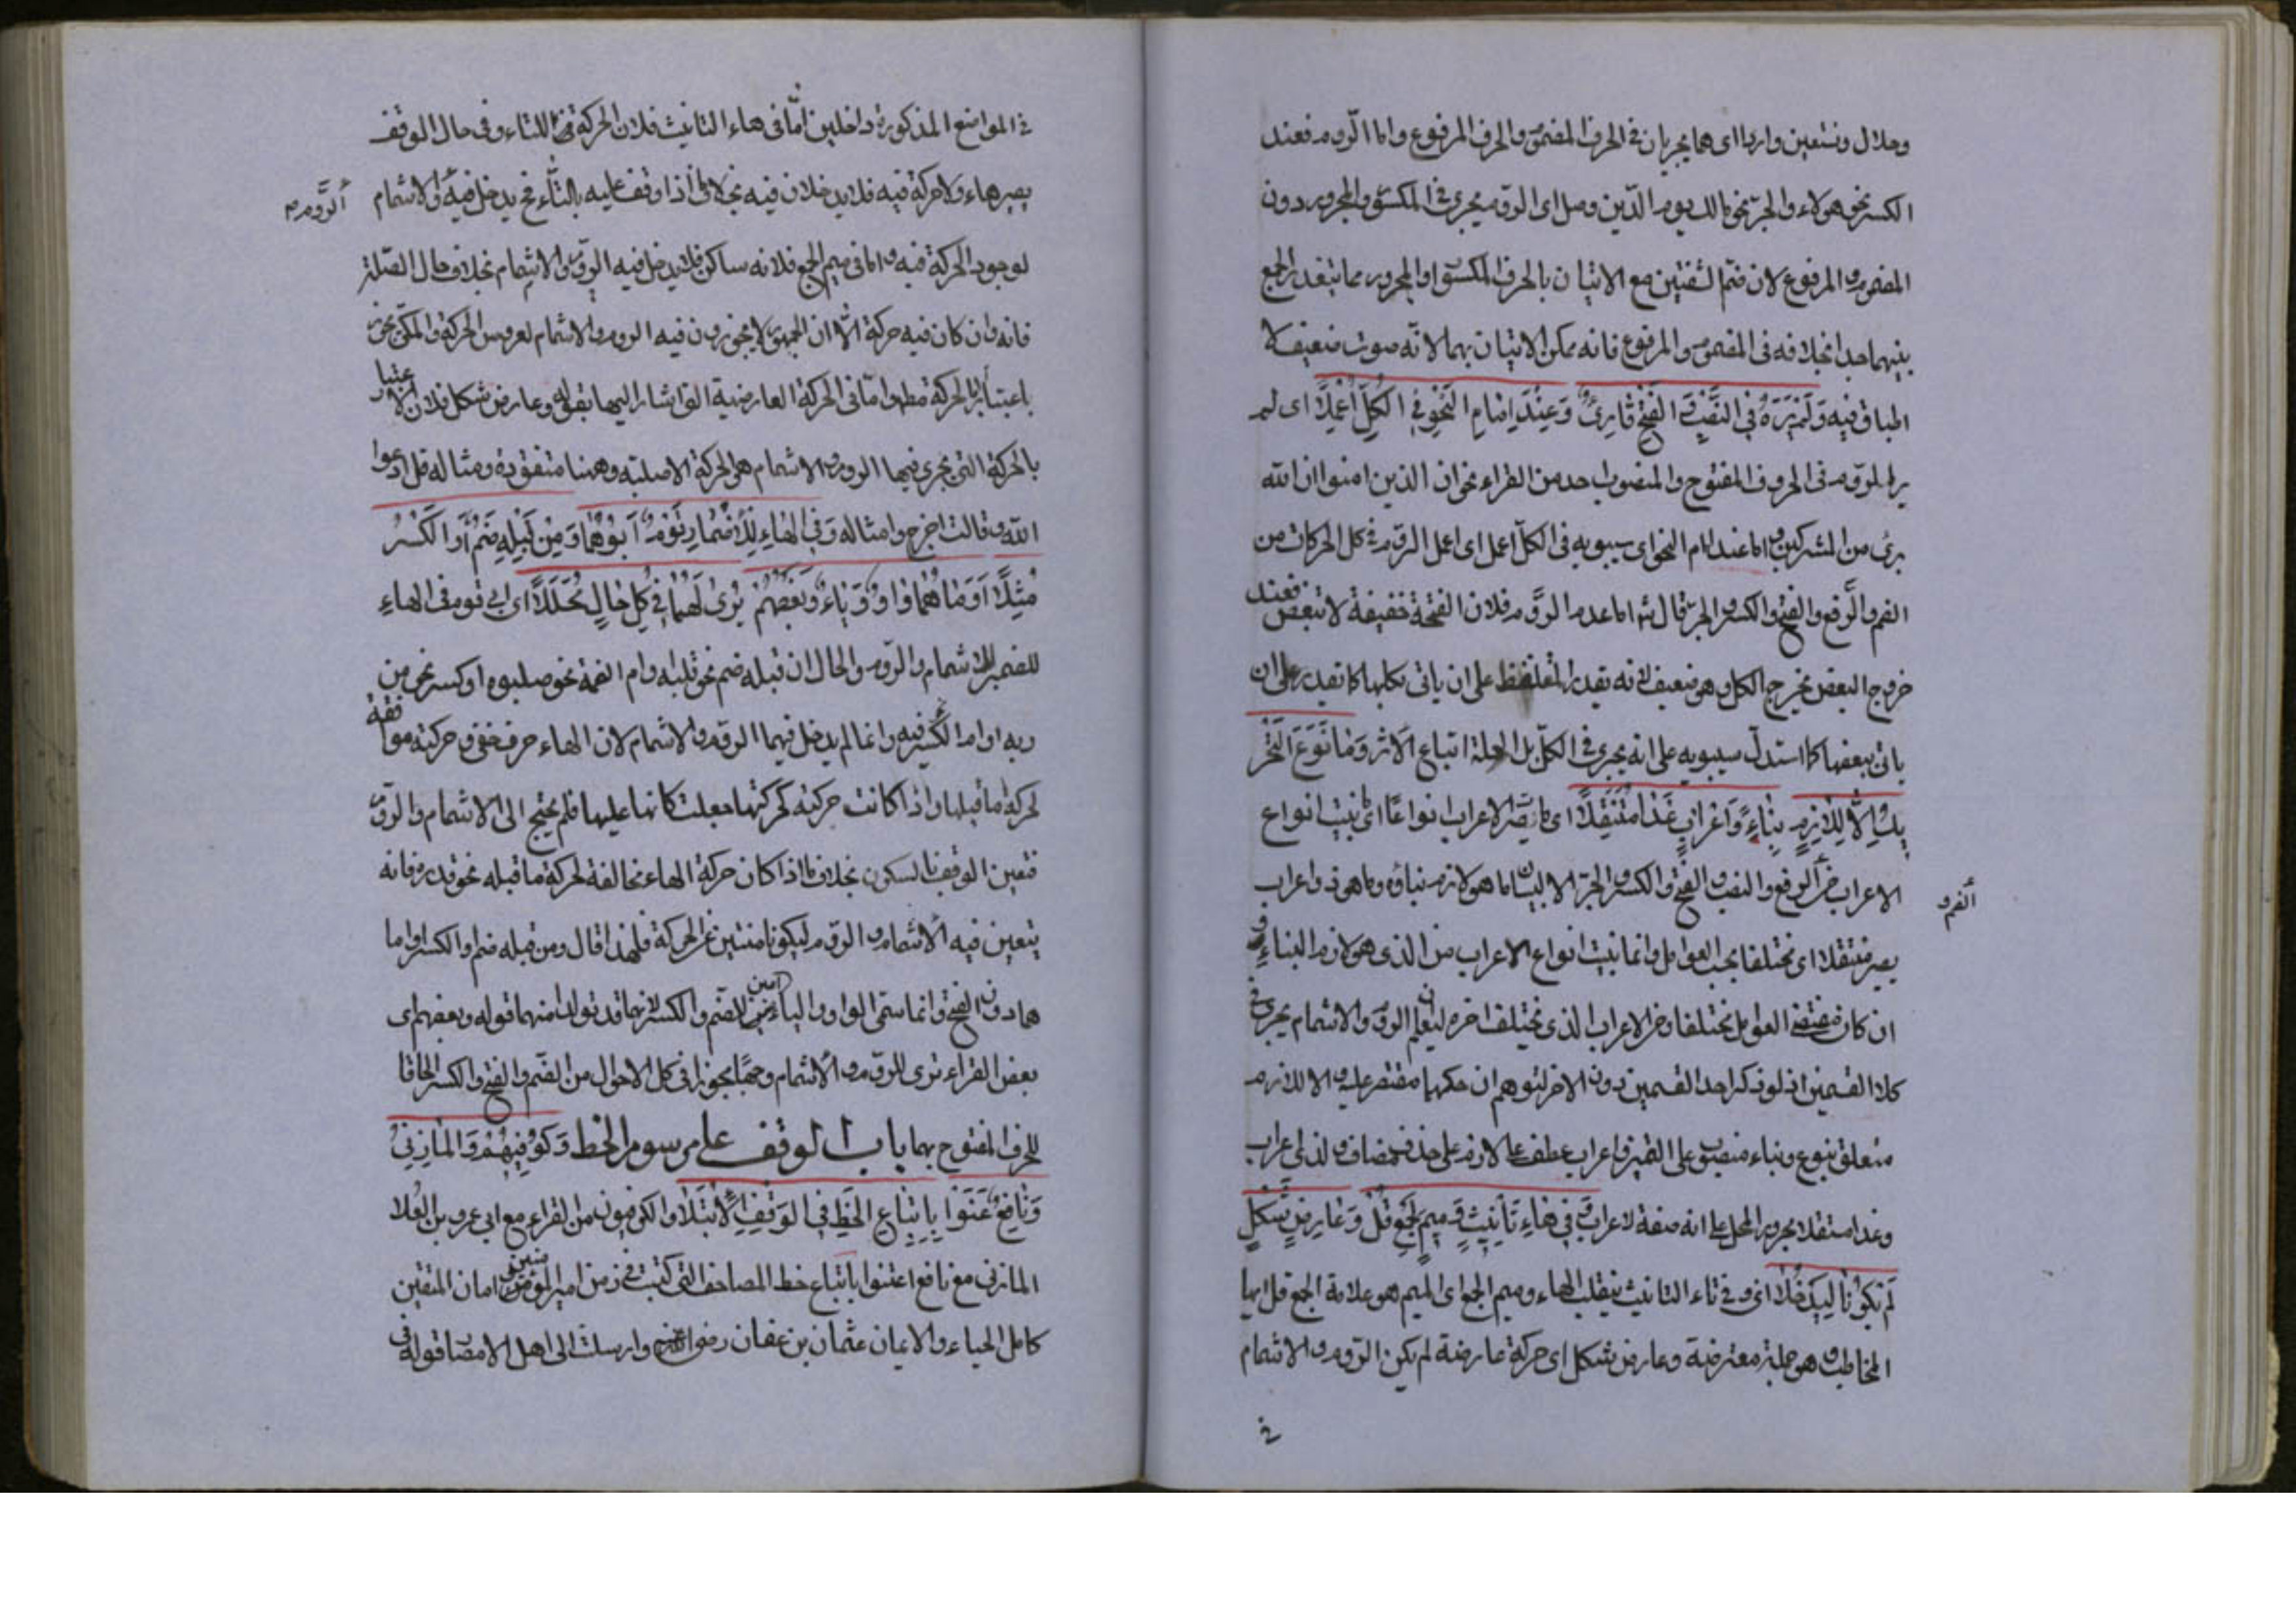 وحلال ونستعين واربا اى هما يجريان فى الحرف المضموم والحرف المرفوع واما الروم فعند
الكسر نحو هولاء والجر نحو مالك يوم الدين وصل اى الروم يجرى فى المكسور والمجرور دون
المضموم والمرفوع لان ضم الشفتين مع الاتيان بالحرف المكسور او المجرور مما يتعذر الجمع
بينهما جدا بخلافه فى المضموم والمرفوع فانه يمكن الاتيان بهما لانه صوت ضعيف لا
اطباق فيه وَلَمْ يَرَهُ فى النَّصْبِ وَ الفَتْحِ قَارِئٌ وَعِنْدَ اِمَامِ النَّحْوِ فى الكُلِّ اُعْمِلَا اى لم
ير الروم فى الحروف المفتوح والمنصوب احد من القراء نحو ان الذين امنوا ان الله
برئ من المشركين واما عند امام النحو اى سيبويه فى الكل اعمل اى اعمل الروم فى كل الحركات من
الضم والرفع والفتح والكسر والجر قال اما عدم الروم فلان الفتحة خفيفة لا تبعض فعند
خروج البعض يخرج الكل وهو ضعيف لانه يقدر المتلفظ على ان ياتى بكلها كما يقدر على ان
ياتى ببعضها كما استدل سيبويه على انه يجرى فى الكل بل العلة اتباع الاثر وَمَا نُوِّعَ التَّحْرِ
يكُ اِلَّا لِلَازِمٍ بِنَاءً وَاِعْرَابٍ غَدَا مُتَنَقِّلَا اى ما يصر الاعراب انواعا اى بنيت انواع
الاعراب من الرفع والنصب والفتح والكسر والجر الا لبيان ما هو لازم بناؤه وما هو ذو اعراب
الضم و
يصير متنقلا اى مختلفا بحسب العوامل وانما بنيت انواع الاعراب من الذى هو لازم البناء و
ان كان مقتضى العوامل مختلفا ومن الاعراب الذى يختلف اخره ليعلم ان الروم والاشمام يجرى فى
كلا القسمين اذ لو ذكر احد القسمين دون الاخر لتوهم ان حكمها مقتصر عليه والا للازم
متعلق بنوع وبناء منصوب على التميز واعراب عطف على لازم على حذف مضاف ولذى اعراب
وغدا متنقلا مجرور المحل على انه صفة لاعراب وَفِى هَاءِ تَأنِيثٍ وَمِيمِ الجَمْعِ قُلْ وَعَارِضِ شَكْلٍ
لَمْ يَكُونَا لِيَدْخُلَا اى وفى تاء التانيث ينقلب الهاء وميم الجمع اى الميم هو علامة الجمع قل ايها
المخاطب وهو جملة معترضة وعارض شكل اى حركة عارضة لم يكن الروم والاشمام
فى
فى المواضع المذكورة داخلين اما فى هاء التانيث فلان الحركة للتاء وفى حال الوقف
يصير هاء ولا حركة فيه فلا يدخلان فيه بخلاف ما اذا وقف عليه بالتاء فح يدخل فيه والاشمام
الروم
لوجود الحركة فيه واما فى ميم الجمع فلانه ساكن فلا يدخل فيه الروم والاشمام بخلاف حال الصلة
فانه وان كان فيه حركة الا ان الجمهور لا يجوزون فيه الروم والاشمام لعروض الحركة والمكى يجوز
باعتبار الحركة مط واما فى الحركة العارضية التى اشار اليها بقوله وعارض شكل فلان الاعتبار
بالحركة التى يجرى فيها الروم والاشمام هو الحركة الاصلية وههنا مفقودة ومثاله قل ادعوا
الله وقالت اخرج وامثاله وَفِى الهَاءِ لِلاِضْمَارِ قَوْمٌ اَبَوْهُمَا وَمِنْ قَبْلِهِ ضَمٌّ اَوِ الكَسْرُ
مُثِّلَا اَوُ مَّاهُمَا وَاوٌ وَيَاءٌ وَبَعْضُهُمْ يُرَى لَهُمَا فِى كُلِّ حَالٍ مُحَلِّلَا اى ابى قوم فى الهاء
للضمير للاشمام والروم والحال ان قبله ضم نحو قلبه وام الضمة نحو صلبوه او كسر نحو من
ربه او ام الكسر فيه وانما لم يدخل فيهما الروم والاشمام لان الهاء حرف خفى وحركته موافقة
لحركة ما قبلها واذا كانت حركته كحركتها جعلت كانها عليها فلم يحتج الى الاشمام والروم
فتعين الوقف بالسكون بخلاف ما اذا كان حركة الهاء مخالفة لحركة ما قبله نحو قدره فانه
يتعين فيه الاشمام والروم ليكونا منبئين عن الحركة فلهذا قال ومن قبله ضم او الكسر او اما
هما دون الفتح وانما سمى الواو والياء امين للضم والكسر لانهما قد تولدا منهما قوله وبعضهم اى
بعض القراء ترى للروم والاشمام وجها مجوزا فى كل الاحوال من الضم والفتح والكسر الحاقا
للحرف المفتوح بهما باب الوقف على مرسوم الخط وَكُوفِيُّهُمْ وَالمَازِنِىُّ
وَنَافِعٌ عَنَوْا بِاتِّبَاعِ الخَطِّ فِى الوَقْفِ الاِبْتِلَا والكوفيون من القراء مع ابى عمرو بن العلا
المازنى مع نافع اعتنوا باتباع خط المصاحف التى كتبت فى زمن امير المؤمنين امان المتقين
كامل الحياء والايمان عثمان بن عفان رضى الله عنه وارسلت الى اهل الامصار قوله فى